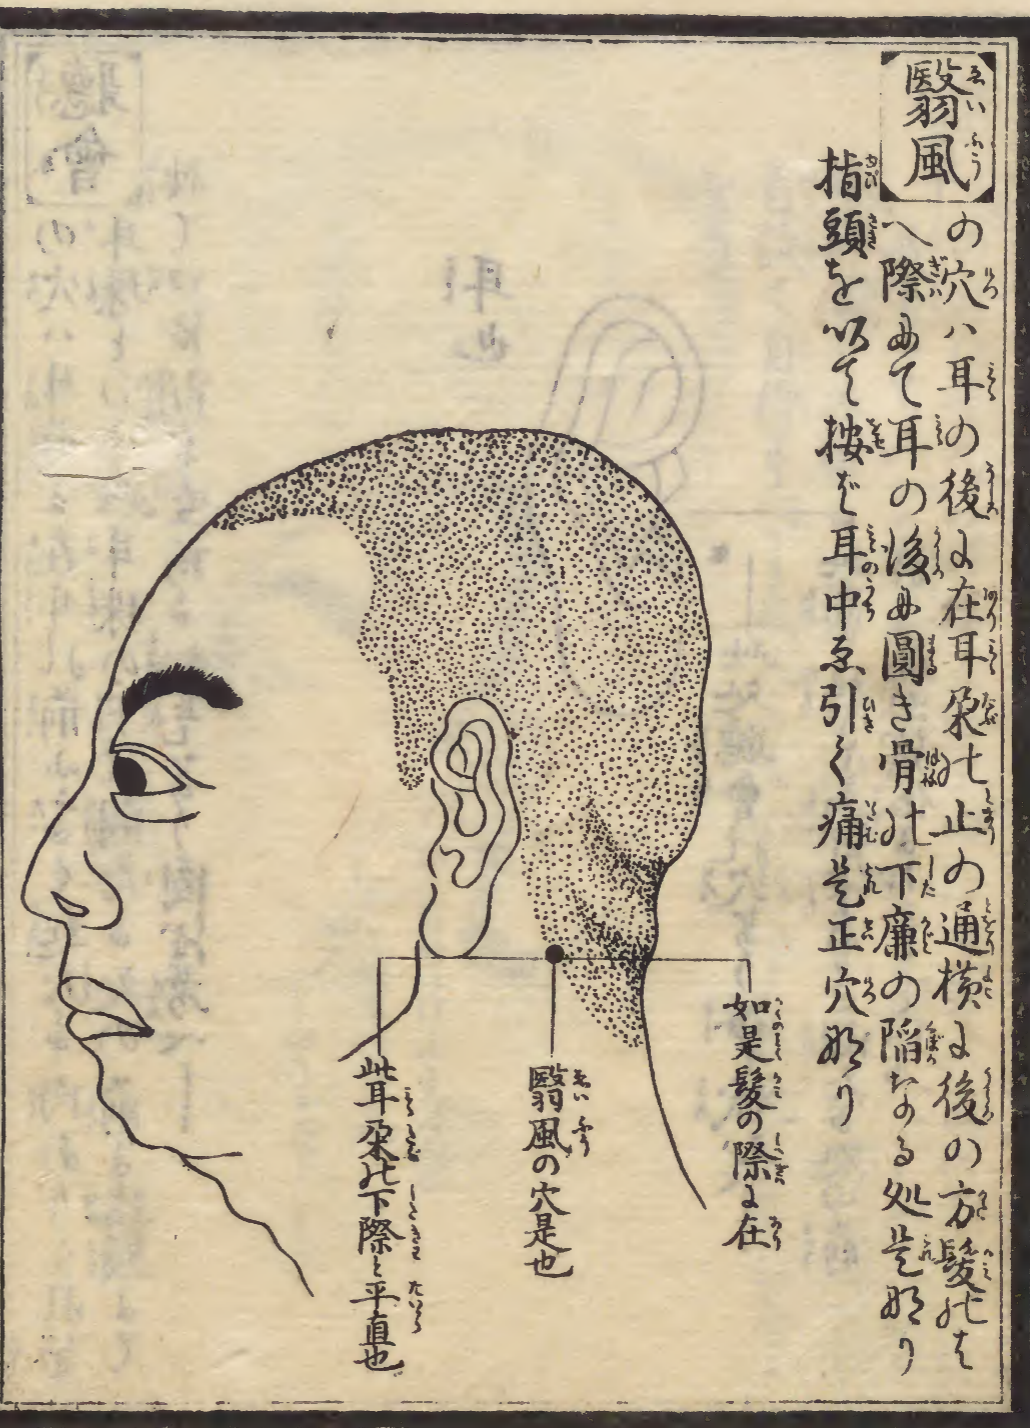 翳風の穴ハ耳の後に在耳朶の止の通横に後の方髪のは
へ際にて耳の後に圓き骨の下廉の陥なる処是なり
指頭を以て按ば耳中ゑ引く痛是正穴なり
如是髪の際に在
翳風の穴是也
此耳朶の下際と平直也